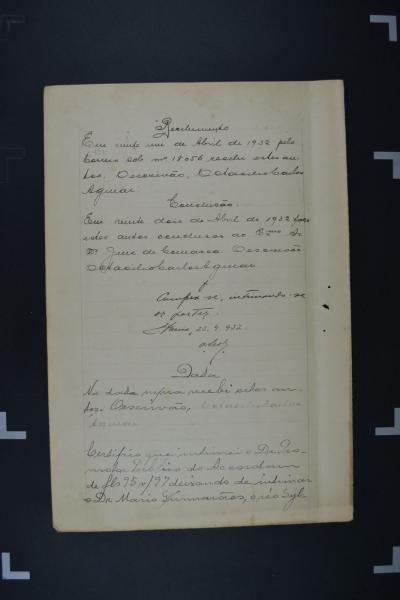 Recebimento
Em vinte um de Abril de 1932 pelo
Correio sob nº 18056 recebi estes au-
tos. O escrivão, Octacilio Carlos
Aguiar
Conclusão.
Em vinte dois de Abril de 1932 faço
estes autos conclusos ao Exmo Sr
Dr. Juiz de Comarca O escrivão
Octacilio Carlos Aguiar
Cumpra-se, intimando-se
as partes.
23. 4. 932.
Data
Na data supra recebi estes au-
tos. O escrivão, Octacilio Carlos
Aguiar
Certifico que intimei o Dr. Pro-
motor Publico do Accordam
de fls 95 v/97 deixando de intimar
o Dr. Mario Guimarães, o réo Syl-